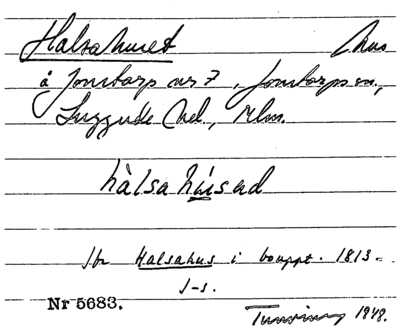 Halsahuset hus
å Jonstorp nr 7, Jonstorps sn,
Luggude hd., Mlm.
hàlsa húsad
Jbr Halsahus i bouppt. 1813.
J-s.
Nr 5683. Tunving 1948.